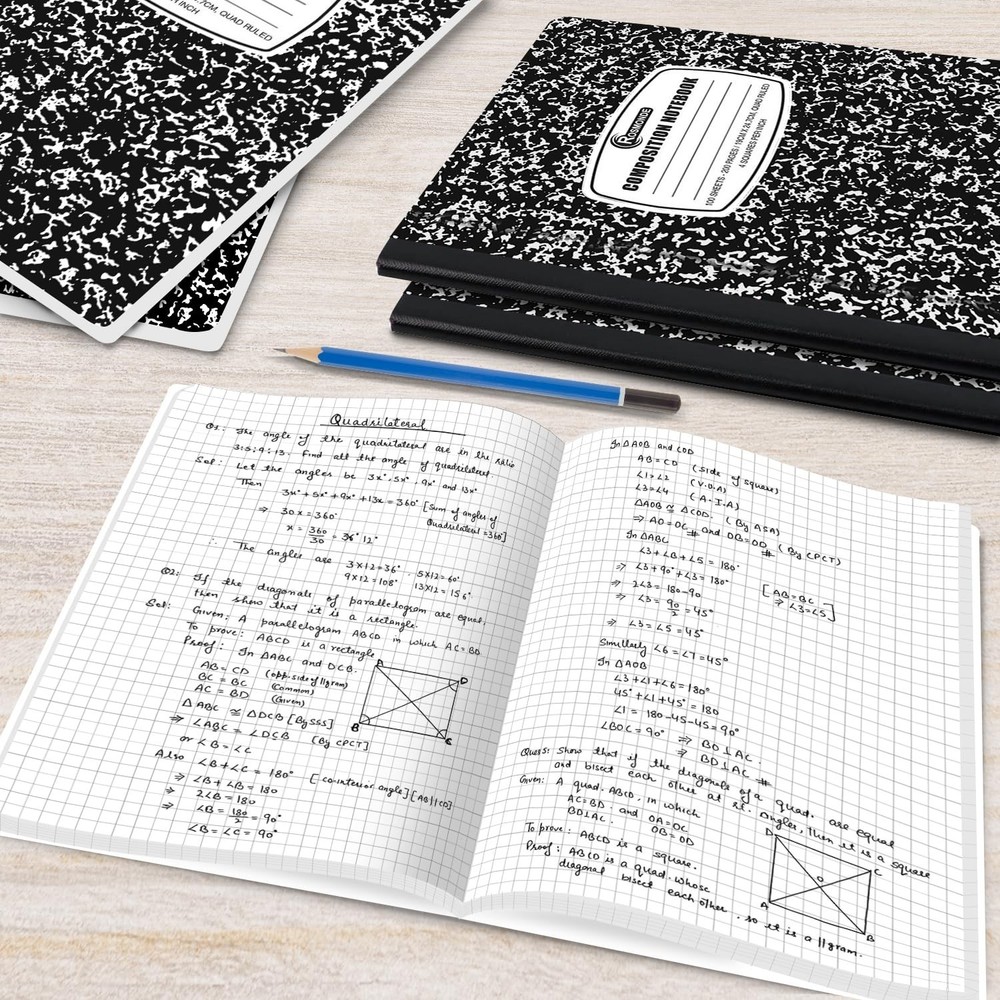 .7CM, QUAD RULED
PER INCH
ROSMONDE
COMPOSITION NOTEBOOK
100 SHEETS - 200 PAGES / 19CM X 24.7CM, QUAD RULED
4 SQUARES PER INCH
Quadrilateral
Q1. The angle of the quadrilateral are in the ratio
3:5:9:13. find all the angle of quadrilateral.
Sol: Let the angles be 3x°, 5x°, 9x° and 13x°
Then
3x° + 5x° + 9x° + 13x = 360° [Sum of angles of
Quadrilateral = 360°]
⇒ 30x = 360°
x = 360/30 = 36° 12°
∴ The angles are 3×12=36° 5×12=60°
9×12=108° 13×12=156°
Q2: If the diagonals of parallelogram are equal.
then show that it is a rectangle.
Sol: Given: A parallelogram ABCD in which AC=BD
To prove: ABCD is a rectangle
Proof: In ΔABC and DCB.
AB=CD (opp. side of ||gram)
BC=BC (Common)
AC=BD (Given)
ΔABC ≅ ΔDCB [By SSS]
⇒ ∠ABC = ∠DCB [By CPCT]
or ∠B=∠C
Also ∠B+∠C=180° [co-interior angle] [AB||CD]
⇒ ∠B+∠B=180
⇒ 2∠B=180
⇒ ∠B=180/2=90°
∠B=∠C=90°
A
D
B
C
In ΔAOB and COD
AB=CD (side of square)
∠1=∠2 (V.O.A)
∠3=∠4 (A.I.A)
ΔAOB ≅ ΔCOD. (By ASA)
⇒ AO=OC # and OB=OD # (By CPCT)
In ΔABC
∠3+∠B+∠5=180°
⇒ ∠3+90°+∠3=180°
⇒ 2∠3=180-90 [AB=BC
⇒ ∠3=90/2=45° ⇒ ∠3=∠5]
⇒ ∠3=∠5=45°
Similarly ∠6=∠7=45°
In ΔAOB
∠3+∠1+∠6=180°
45°+∠1+45°=180
∠1=180-45-45=90°
∠BOC=90° ⇒ BO⊥AC.
⇒ BD⊥AC #
Ques: Show that if the diagonals of a quad. are equal
and bisect each other at rt. angles, then it is a square
Given: A quad. ABCD, in which
AC=BD and OA=OC
BD⊥AC. OB=OD
To prove: ABCD is a square.
Proof: ABCD is a quad. whose
diagonal bisect each other. so it is a ||gram.
D
C
O
A
B